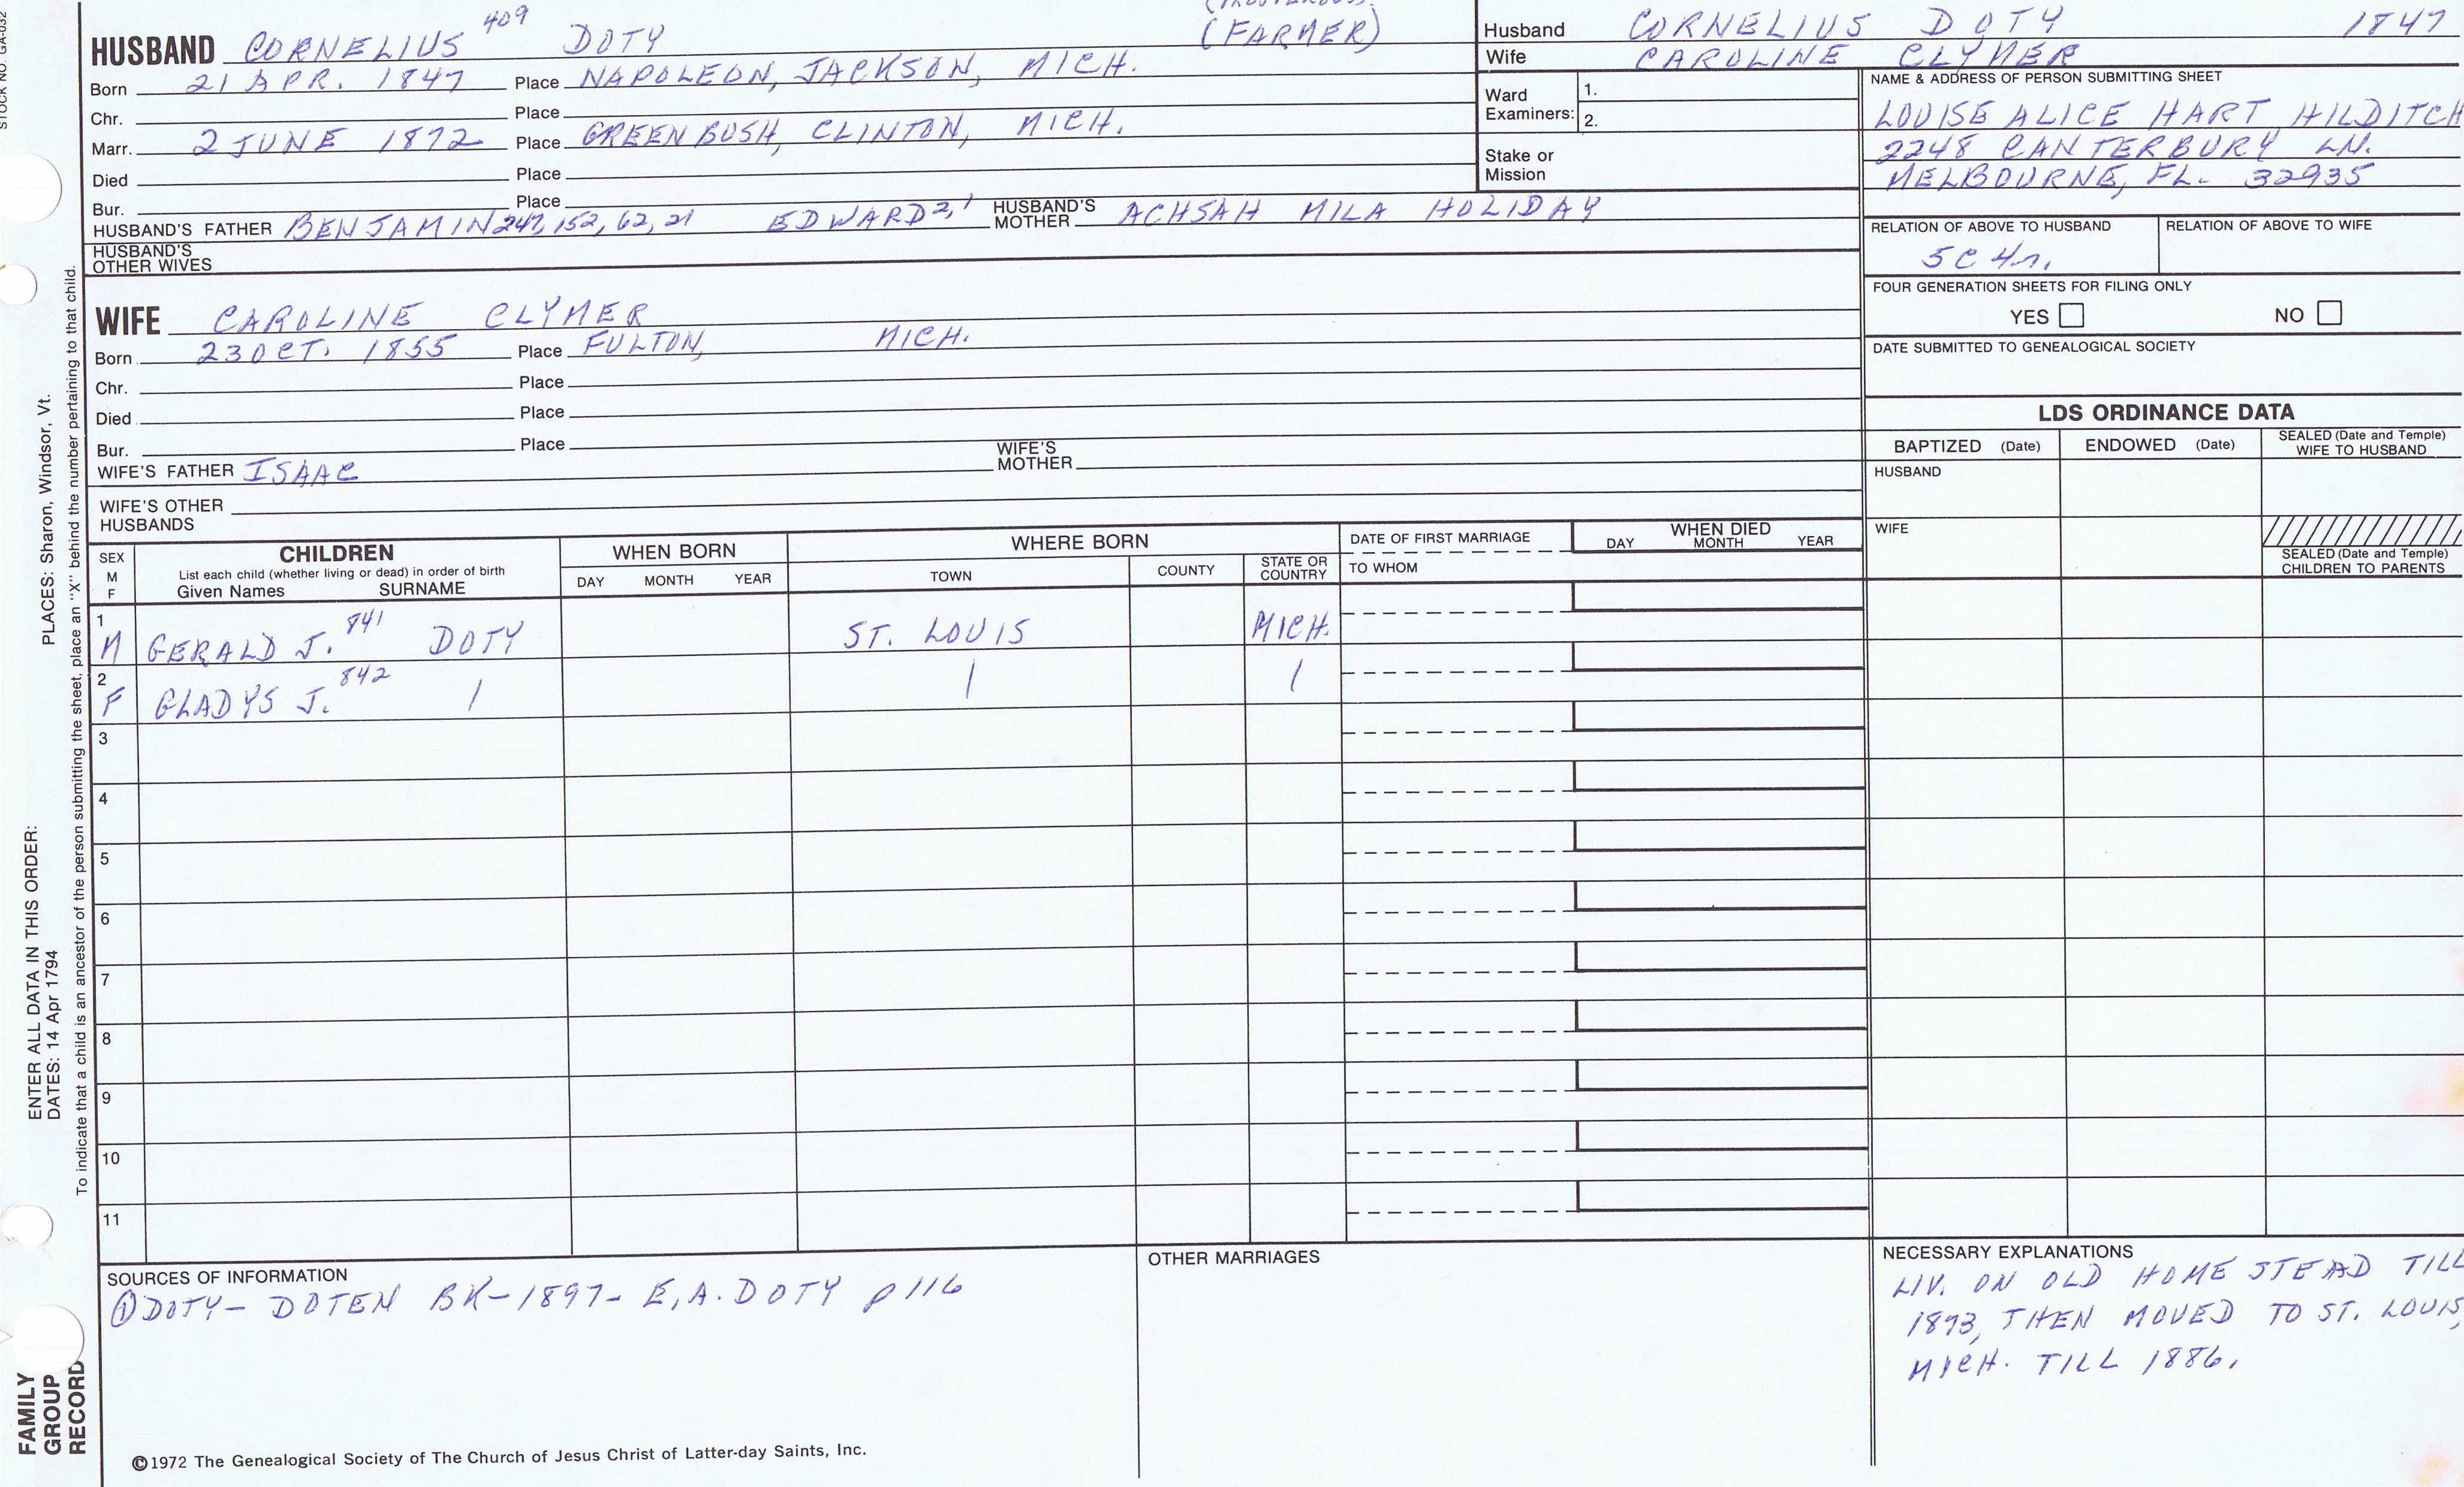 STOCK NO. GA-032
(FARMER)
HUSBAND CORNELIUS 409 DOTY
Born 21 APR. 1847 Place NAPOLEON, JACKSON, MICH.
Chr. Place
Marr. 2 JUNE 1872 Place GREENBUSH, CLINTON, MICH.
Died Place
Bur. Place
HUSBAND'S FATHER BENJAMIN 247, 152, 62, 21 EDWARD 2, 1 HUSBAND'S MOTHER ACHSAH MILA HOLIDAY
HUSBAND'S OTHER WIVES
WIFE CAROLINE CLYMER
Born 23 OCT. 1855 Place FULTON, MICH.
Chr. Place
Died Place
Bur. Place
WIFE'S FATHER ISAAC WIFE'S MOTHER
WIFE'S OTHER HUSBANDS
Husband CORNELIUS DOTY 1847
Wife CAROLINE CLYMER
Ward Examiners: 1.
2.
Stake or Mission
NAME & ADDRESS OF PERSON SUBMITTING SHEET
LOUISE ALICE HART HILDITCH
2248 CANTERBURY LN.
MELBOURNE, FL. 32935
RELATION OF ABOVE TO HUSBAND RELATION OF ABOVE TO WIFE
5C 4r.
FOUR GENERATION SHEETS FOR FILING ONLY
YES NO
DATE SUBMITTED TO GENEALOGICAL SOCIETY
LDS ORDINANCE DATA
BAPTIZED (Date) ENDOWED (Date) SEALED (Date and Temple) WIFE TO HUSBAND
HUSBAND
WIFE
SEALED (Date and Temple) CHILDREN TO PARENTS
SEX M F CHILDREN WHEN BORN WHERE BORN DATE OF FIRST MARRIAGE WHEN DIED
List each child (whether living or dead) in order of birth
Given Names SURNAME DAY MONTH YEAR TOWN COUNTY STATE OR COUNTRY TO WHOM DAY MONTH YEAR
1 M GERALD J. 841 DOTY ST. LOUIS MICH.
2 F GLADYS J. 842 | | |
3
4
5
6
7
8
9
10
11
SOURCES OF INFORMATION
① DOTY - DOTEN BK - 1897 - E.A. DOTY p 116
OTHER MARRIAGES
NECESSARY EXPLANATIONS
LIV. ON OLD HOME STEAD TILL
1893, THEN MOVED TO ST. LOUIS,
MICH. TILL 1886.
©1972 The Genealogical Society of The Church of Jesus Christ of Latter-day Saints, Inc.
ENTER ALL DATA IN THIS ORDER:
DATES: 14 Apr 1794 PLACES: Sharon, Windsor, Vt.
To indicate that a child is an ancestor of the person submitting the sheet, place an "X" behind the number pertaining to that child.
FAMILY
GROUP
RECORD